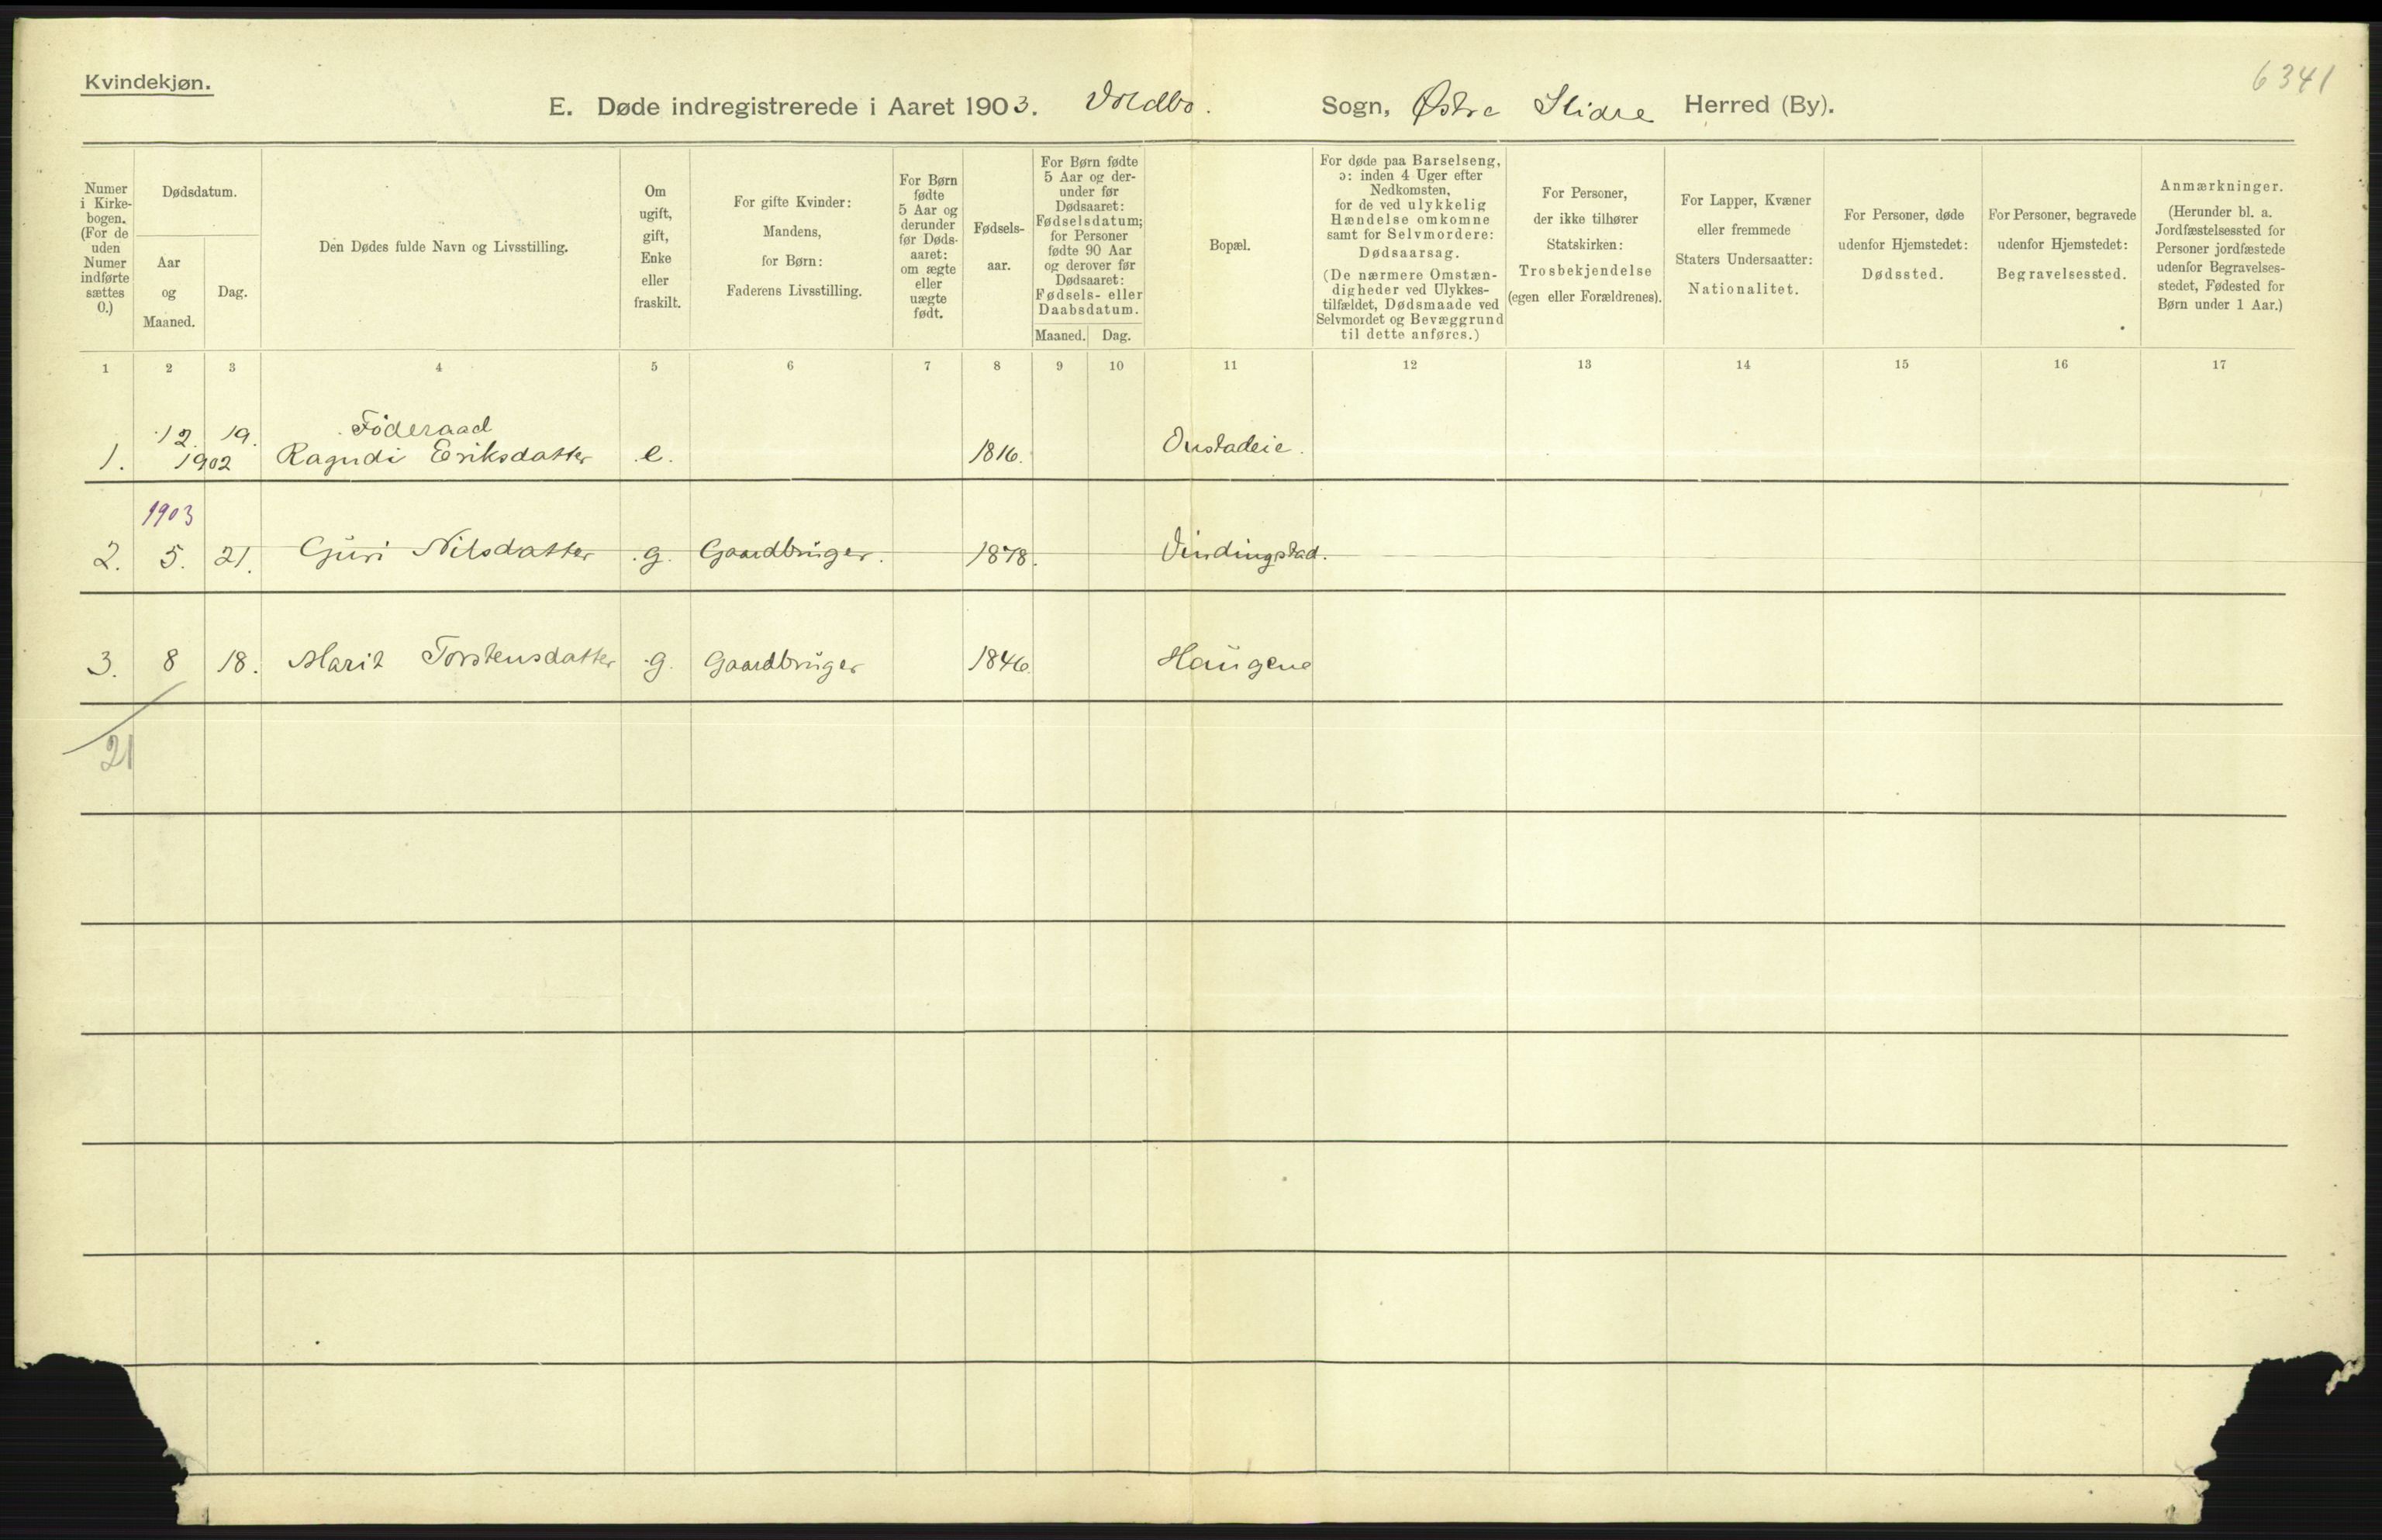 Kvindekjøn.
6341
E. Døde indregistrerede i Aaret 1903. Voldbo. Sogn, Østre Slidre Herred (By).
Numer
i Kirke-
bogen.
(For de
uden
Numer
indførte
sættes
0.)
Dødsdatum.
Aar
og
Maaned.
Dag.
Den Dødes fulde Navn og Livsstilling.
Om
ugift,
gift,
Enke
eller
fraskilt.
For gifte Kvinder:
Mandens,
for Børn:
Faderens Livsstilling.
For Børn
fødte
5 Aar og
derunder
før Døds-
aaret:
om ægte
eller
uægte
født.
Fødsels-
aar.
For Børn fødte
5 Aar og der-
under før
Dødsaaret:
Fødselsdatum;
for Personer
fødte 90 Aar
og derover før
Dødsaaret:
Fødsels- eller
Daabsdatum.
Maaned. Dag.
Bopæl.
For døde paa Barselseng,
ɔ: inden 4 Uger efter
Nedkomsten,
for de ved ulykkelig
Hændelse omkomne
samt for Selvmordere:
Dødsaarsag.
(De nærmere Omstæn-
digheder ved Ulykkes-
tilfældet, Dødsmaade ved
Selvmordet og Bevæggrund
til dette anføres.)
For Personer,
der ikke tilhører
Statskirken:
Trosbekjendelse
(egen eller Forældrenes).
For Lapper, Kvæner
eller fremmede
Staters Undersaatter:
Nationalitet.
For Personer, døde
udenfor Hjemstedet:
Dødssted.
For Personer, begravede
udenfor Hjemstedet:
Begravelsessted.
Anmærkninger.
(Herunder bl. a.
Jordfæstelsessted for
Personer jordfæstede
udenfor Begravelses-
stedet, Fødested for
Børn under 1 Aar.)
1 2 3 4 5 6 7 8 9 10 11 12 13 14 15 16 17
12. 19. Föderaad
1. 1902 Ragndi Eriksdatter e. 1816. Onstadeie.
1903
2. 5. 21. Guri Nilsdatter g. Gaardbruger. 1878. Vindingstad.
3. 8 18. Marit Torstensdatter g. Gaardbruger 1846. Haugene
21